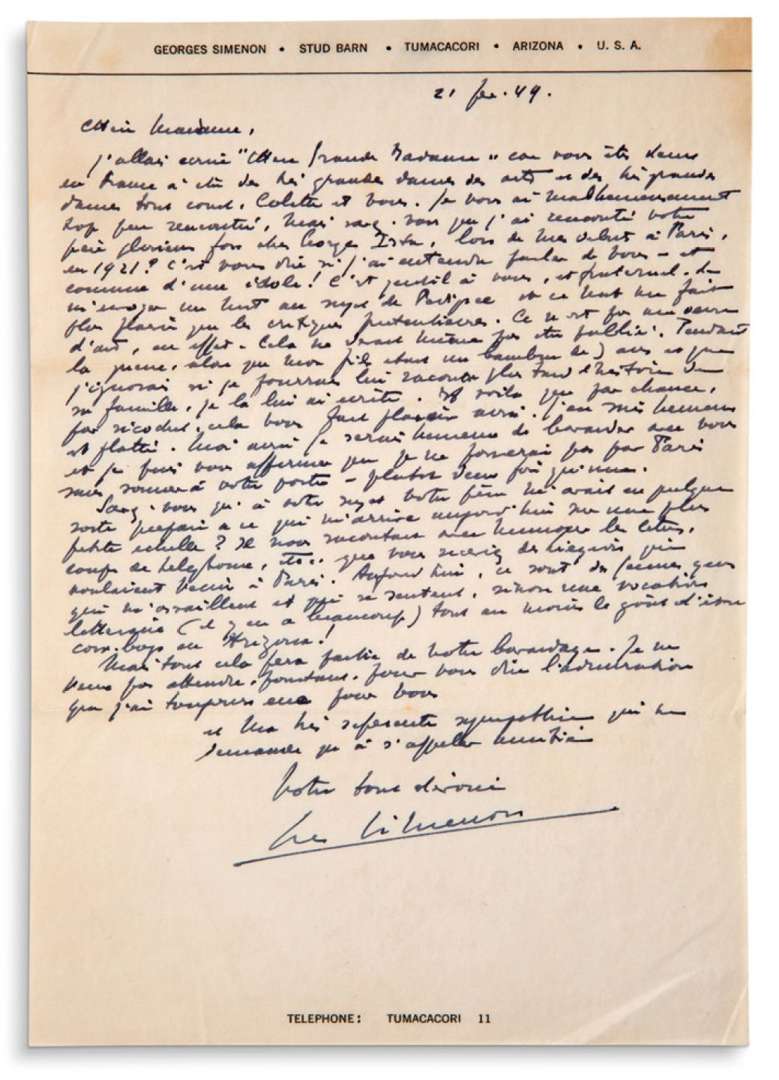 GEORGES SIMENON • STUD BARN • TUMACACORI • ARIZONA • U. S. A.
21 fev. 49.
Chère Madame,
J'allais écrire "Chère Grande Madame" car vous êtes dans
en France à été des très grandes dames des arts et des très grandes
dames tout court, Colette et vous. Je vous ai malheureusement
trop peu rencontrée, mais savez-vous que j'ai rencontré votre
père plusieurs fois chez George Ista, lors de mes débuts à Paris,
en 1921? C'est vous dire si j'ai entendu parler de vous - et
comme d'une idole! C'est gentil à vous, et fraternel, de
m'envoyer un mot au sujet de Pedigree et ce mot me fait
plus plaisir que les critiques prétentieuses. Ce n'est pas une œuvre
d'art, en effet. Cela ne devait même pas être publié. Pendant
la guerre, alors que mon fils était un bambin de 3 ans et que
j'ignorais si je pourrais lui raconter plus tard l'histoire de
sa famille, je la lui ai écrite. Et voilà que par chance,
par ricochet, cela vous fait plaisir aussi. J'en suis heureux
et flatté. Moi aussi je serais heureux de bavarder avec vous
et je puis vous affirmer que je ne passerai pas par Paris
sans sonner à votre porte - plutôt deux fois qu'une.
Savez-vous qu'à votre sujet votre père m'avait en quelque
sorte préparé à ce qui m'arrive aujourd'hui sur une plus
petite échelle? Il nous racontait avec humour les lettres,
coups de téléphone, etc.. que vous receviez des liégeois qui
voulaient venir à Paris. Aujourd'hui, ce sont des jeunes gens
qui m'assaillent et qui se sentent, sinon une vocation
littéraire (il y en a beaucoup) tout au moins le goût d'être
cow-boys en Arizona!
Mais tout cela fera partie de notre bavardage. Je ne
veux pas attendre, pourtant, pour vous dire l'admiration
que j'ai toujours eue pour vous
et ma très respectueuse sympathie qui ne
demande qu'à s'appeler amitié
Votre tout dévoué
Simenon
TELEPHONE: TUMACACORI 11